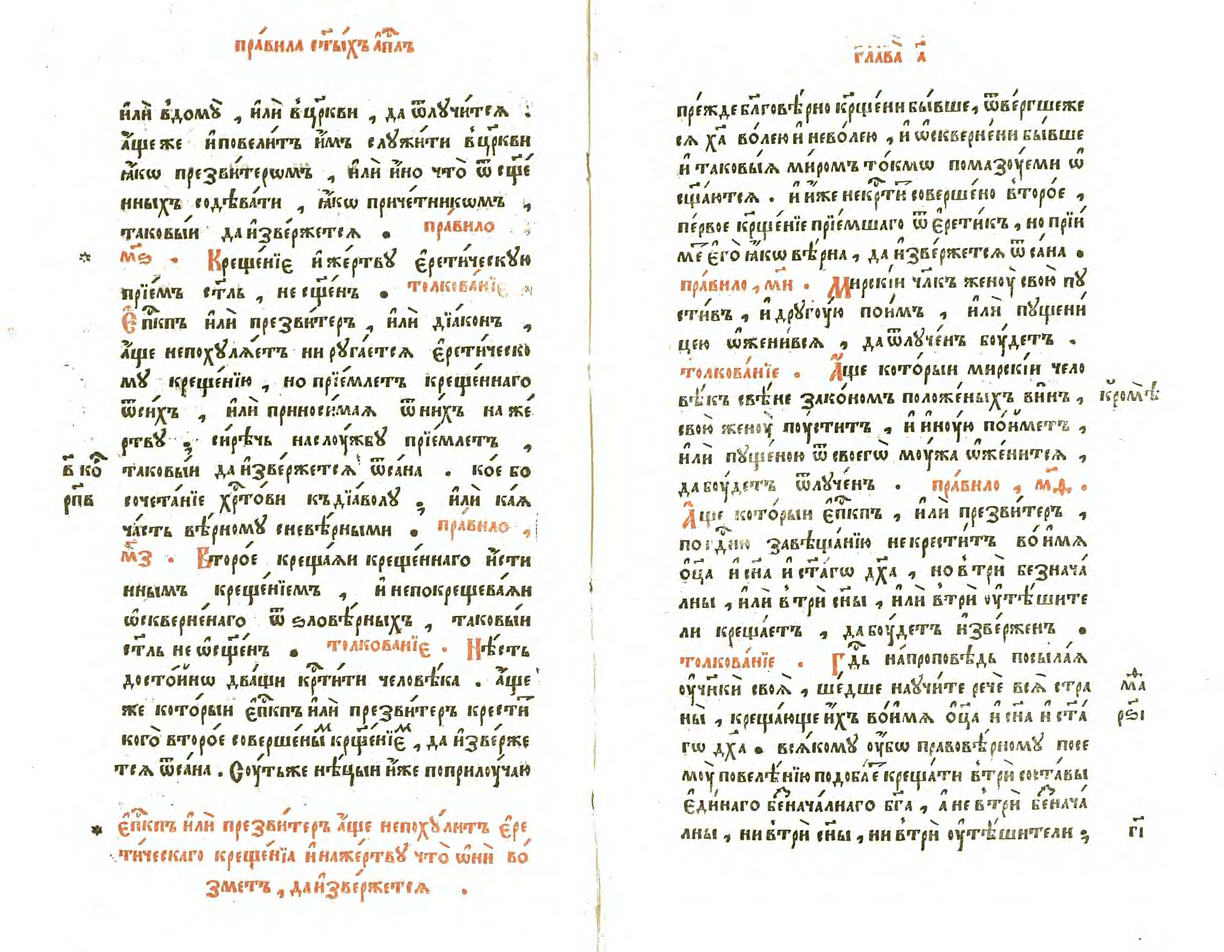 пра́вила ст҃ы́хъ а҆п҃лъ
и҆лѝ вдомꙋ̀ , и҆лѝ вцр҃кви , да ѿлꙋчи́тсѧ :
а҆́ще же и҆повели́тъ и҆̀мъ слꙋжи́ти вцр҃кви
ꙗ҆́кѡ презви́терѡмъ , и҆лѝ и҆́но что̀ ѿ сщ҃е́
нныхъ содѣ́вати , ꙗ҆́кѡ приче́тникѡмъ ,
таковы́и да и҆зве́ржетсѧ . пра́вило
м҃ѕ . Креще́нїе и҆ же́ртвꙋ є҆рети́ческꙋю
прїе́мъ ст҃ль , не сщ҃е́нъ . толкова́нїе
Е҆п҃кпъ и҆лѝ презви́теръ , и҆лѝ дїа́конъ ,
а҆́ще непохꙋлѧ́етъ ни рꙋга́етсѧ є҆рети́ческо
мꙋ креще́нїю , но прїе́млетъ креще́ннаго
ѿси́хъ , и҆лѝ приноси́маѧ ѿни́хъ на же́
ртвꙋ ; си́рѣчь наслоу́жбꙋ прїе́млетъ ,
в҃ ко҇
таковы́и да и҆зве́ржетсѧ ѿса́на . ко́е бо
рп҃в
сочета́нїе хр҇то́ви къ дїа́волꙋ ; и҆лѝ ка́ѧ
ча́сть вѣ́рномꙋ сневѣ́рными . пра́вило ,
м҃з . Второ́е креща́ѧи креще́ннаго и҆́сти
ннымъ креще́нїемъ , и҆ непокрещева́ѧи
ѡ҆скверне́наго ѿ ѕловѣ́рныхъ , таковы́и
ст҃ль не ѡ҆сщ҃е́нъ . толкова́нїе . Нѣ́сть
досто́инѡ два́щи кр҇ти́ти человѣ́ка . а҆́ще
же кото́рыи є҆п҃кпъ и҆лѝ презви́теръ крести́т
кого̀ второ́е соверше́ным кр҃ще́нїем , да и҆зве́рже
тсѧ ѿса́на . Соу́тьже нѣ́цыи и҆̀же поприлоуча́ю
* є҆п҃кпъ и҆лѝ презви́теръ а҆́ще непохꙋ́литъ є҆ре
ти́ческаго креще́нїа и҆ нажертвꙋ что̀ ѡ҆нѝ во́
зметъ , да и҆зве́ржетсѧ .
глава̀ а҃
пре́жде бл҃говѣ́рно кр҃ще́ни бы́вше , ѿве́ргшеже
сѧ хр҇та̀ во́лею и҆ нево́лею , и҆ ѡ҆скверне́ни бы́вше
и҆ таковы́ѧ мѵ́ромъ то́кмѡ помазоу́еми ѡ҆
сща́ютсѧ . и҆ и҆́же некр҇ти́т соверше́но второ́е ,
пе́рвое кр҃ще́нїе прїе́мшаго ѿ є҆рети́къ , но прїи́
ме҇ є҆го̀ ꙗ҆́кѡ вѣ́рна , да и҆зве́ржетсѧ ѿ са́на .
пра́вило , м҃и . Мирскі́и чл҃къ женоу̀ свою̀ пꙋ
сти́въ , и҆ дрꙋгоу́ю пои́мъ , и҆лѝ пꙋще́ни
цею ѡ҆жени́всѧ , да ѿлꙋче́нъ боу́детъ .
толкова́нїе . А҆́ще кото́рыи мирскі́и чело
вѣ́къ свѣ́не зако́номъ положе́ныхъ ви́нъ , кромѣ̀
свою̀ женоу̀ поу́ститъ , и҆ и҆ноу́ю по́иметъ ,
и҆лѝ пꙋще́ною ѿ своегѡ̀ моу́жа ѡ҆же́нитсѧ ,
да боу́детъ ѿлꙋче́нъ . пра́вило , м҃ѳ .
А҆́ще кото́рыи є҆п҃кпъ , и҆лѝ презви́теръ ,
по гд҇ню завѣща́нїю не крести́тъ во и҆́мѧ
о҆ц҃а̀ и҆ сн҃а и҆ ст҃а́гѡ дх҃а , но в трѝ безнача́
лны , и҆лѝ в трѝ сн҃ы , и҆лѝ втрѝ оу҆тѣ́шите
ли креща́етъ , да боу́детъ и҆зве́рженъ .
толкова́нїе . Гд҇ь напро́повѣдь посыла́ѧ
оу҆чн҃ки своѧ̀ , ше́дше наꙋчи́те речѐ всѧ̀ стра мѳ҇а
ны̀ , креща́юще и҆́хъ во и҆́мѧ о҆ц҃а̀ и҆ сн҃а и҆ ст҃а́ рѕ҃і
гѡ дх҃а . всѧ́комꙋ оу҆́бѡ правовѣ́рномꙋ посе
моу̀ повелѣ́нїю подоба́е҇ креща́ти втрѝ соста́вы
є҆ди́наго безнача́лнаго бг҃а , а҆ не в трѝ безнача́
лны , ни втрѝ сн҃ы , ни втрѝ оу҆тѣ́шители ; г҃і